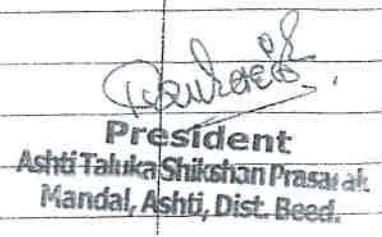 President
Ashti Taluka Shikshan Prasarak
Mandal, Ashti, Dist. Beed.